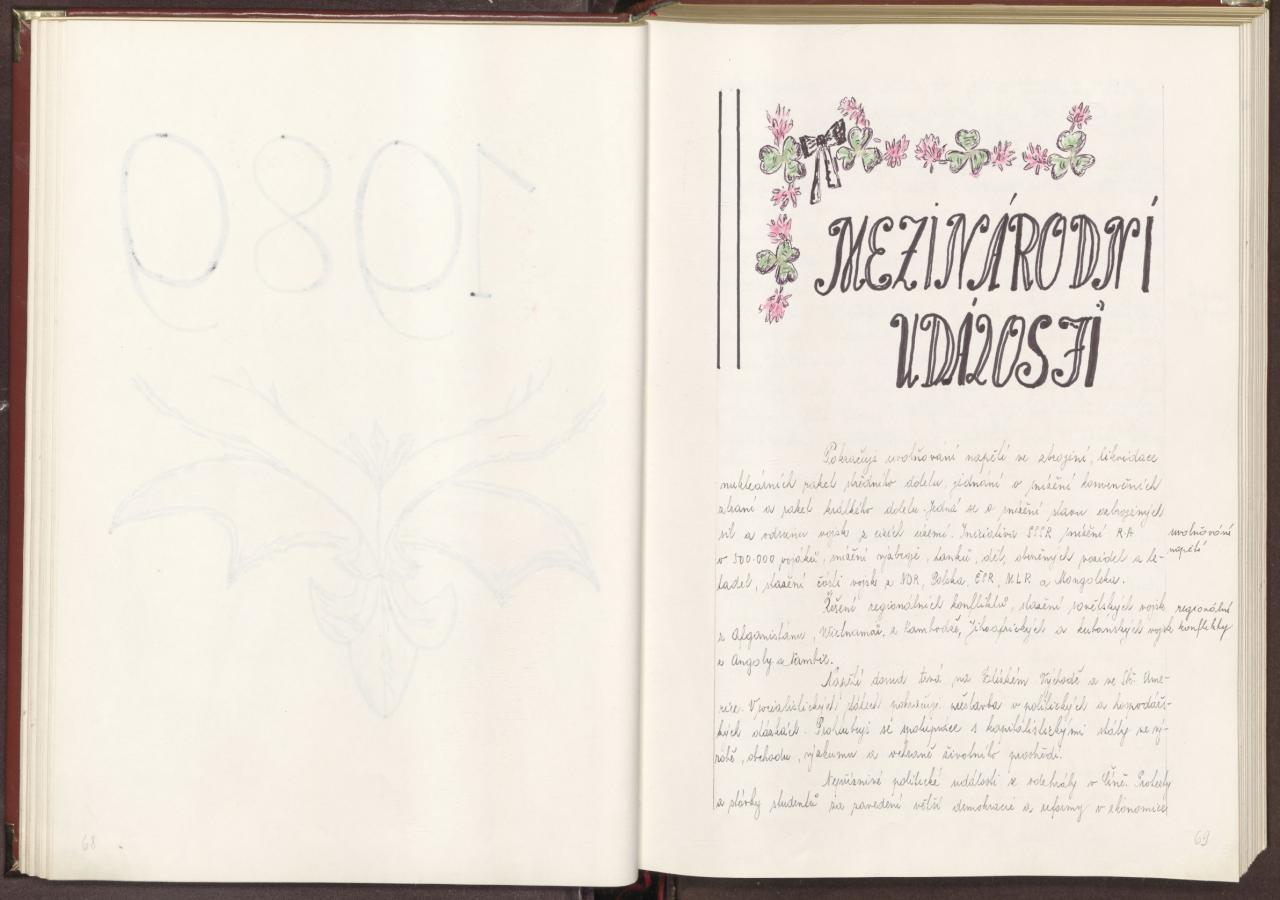 1989
68
MEZINÁRODNÍ
UDÁLOSTI
Pokračuje uvolňování napětí ve zbrojení, likvidace
nukleárních raket středního doletu, jednání o snížení konvenčních
zbraní a raket krátkého doletu. Jedná se o snížení stavu ozbrojených
sil a odsunu vojsk z cizích území. Iniciativa SSSR snížení R.A
o 500.000 vojáků, snížení výzbroje, tanků, děl, obrněných vozidel a le-
tadel, stažení části vojsk z NDR, Polska, ČSR, MLR a Mongolska.
uvolňování
napětí
Řešení regionálních konfliktů, stažení sovětských vojsk
z Afganistánu, Vietnamců z Kambodže, Jihoafrických a kubánských vojsk
z Angoly a Nambie.
regionální
konflikty
Napětí dosud trvá na Blízkém Východě a ve Stř. Ame-
rice. V socialistických státech pokračuje přestavba v politických a hospodářs-
kých otázkách. Prohlubuje se spolupráce s kapitalistickými státy ve vý-
robě, obchodu, výzkumu a ochraně životního prostředí.
Nepříznivé politické události se odehrály v Číně. Protesty
a stávky studentů za zavedení větší demokracie a reformy v ekonomice
69